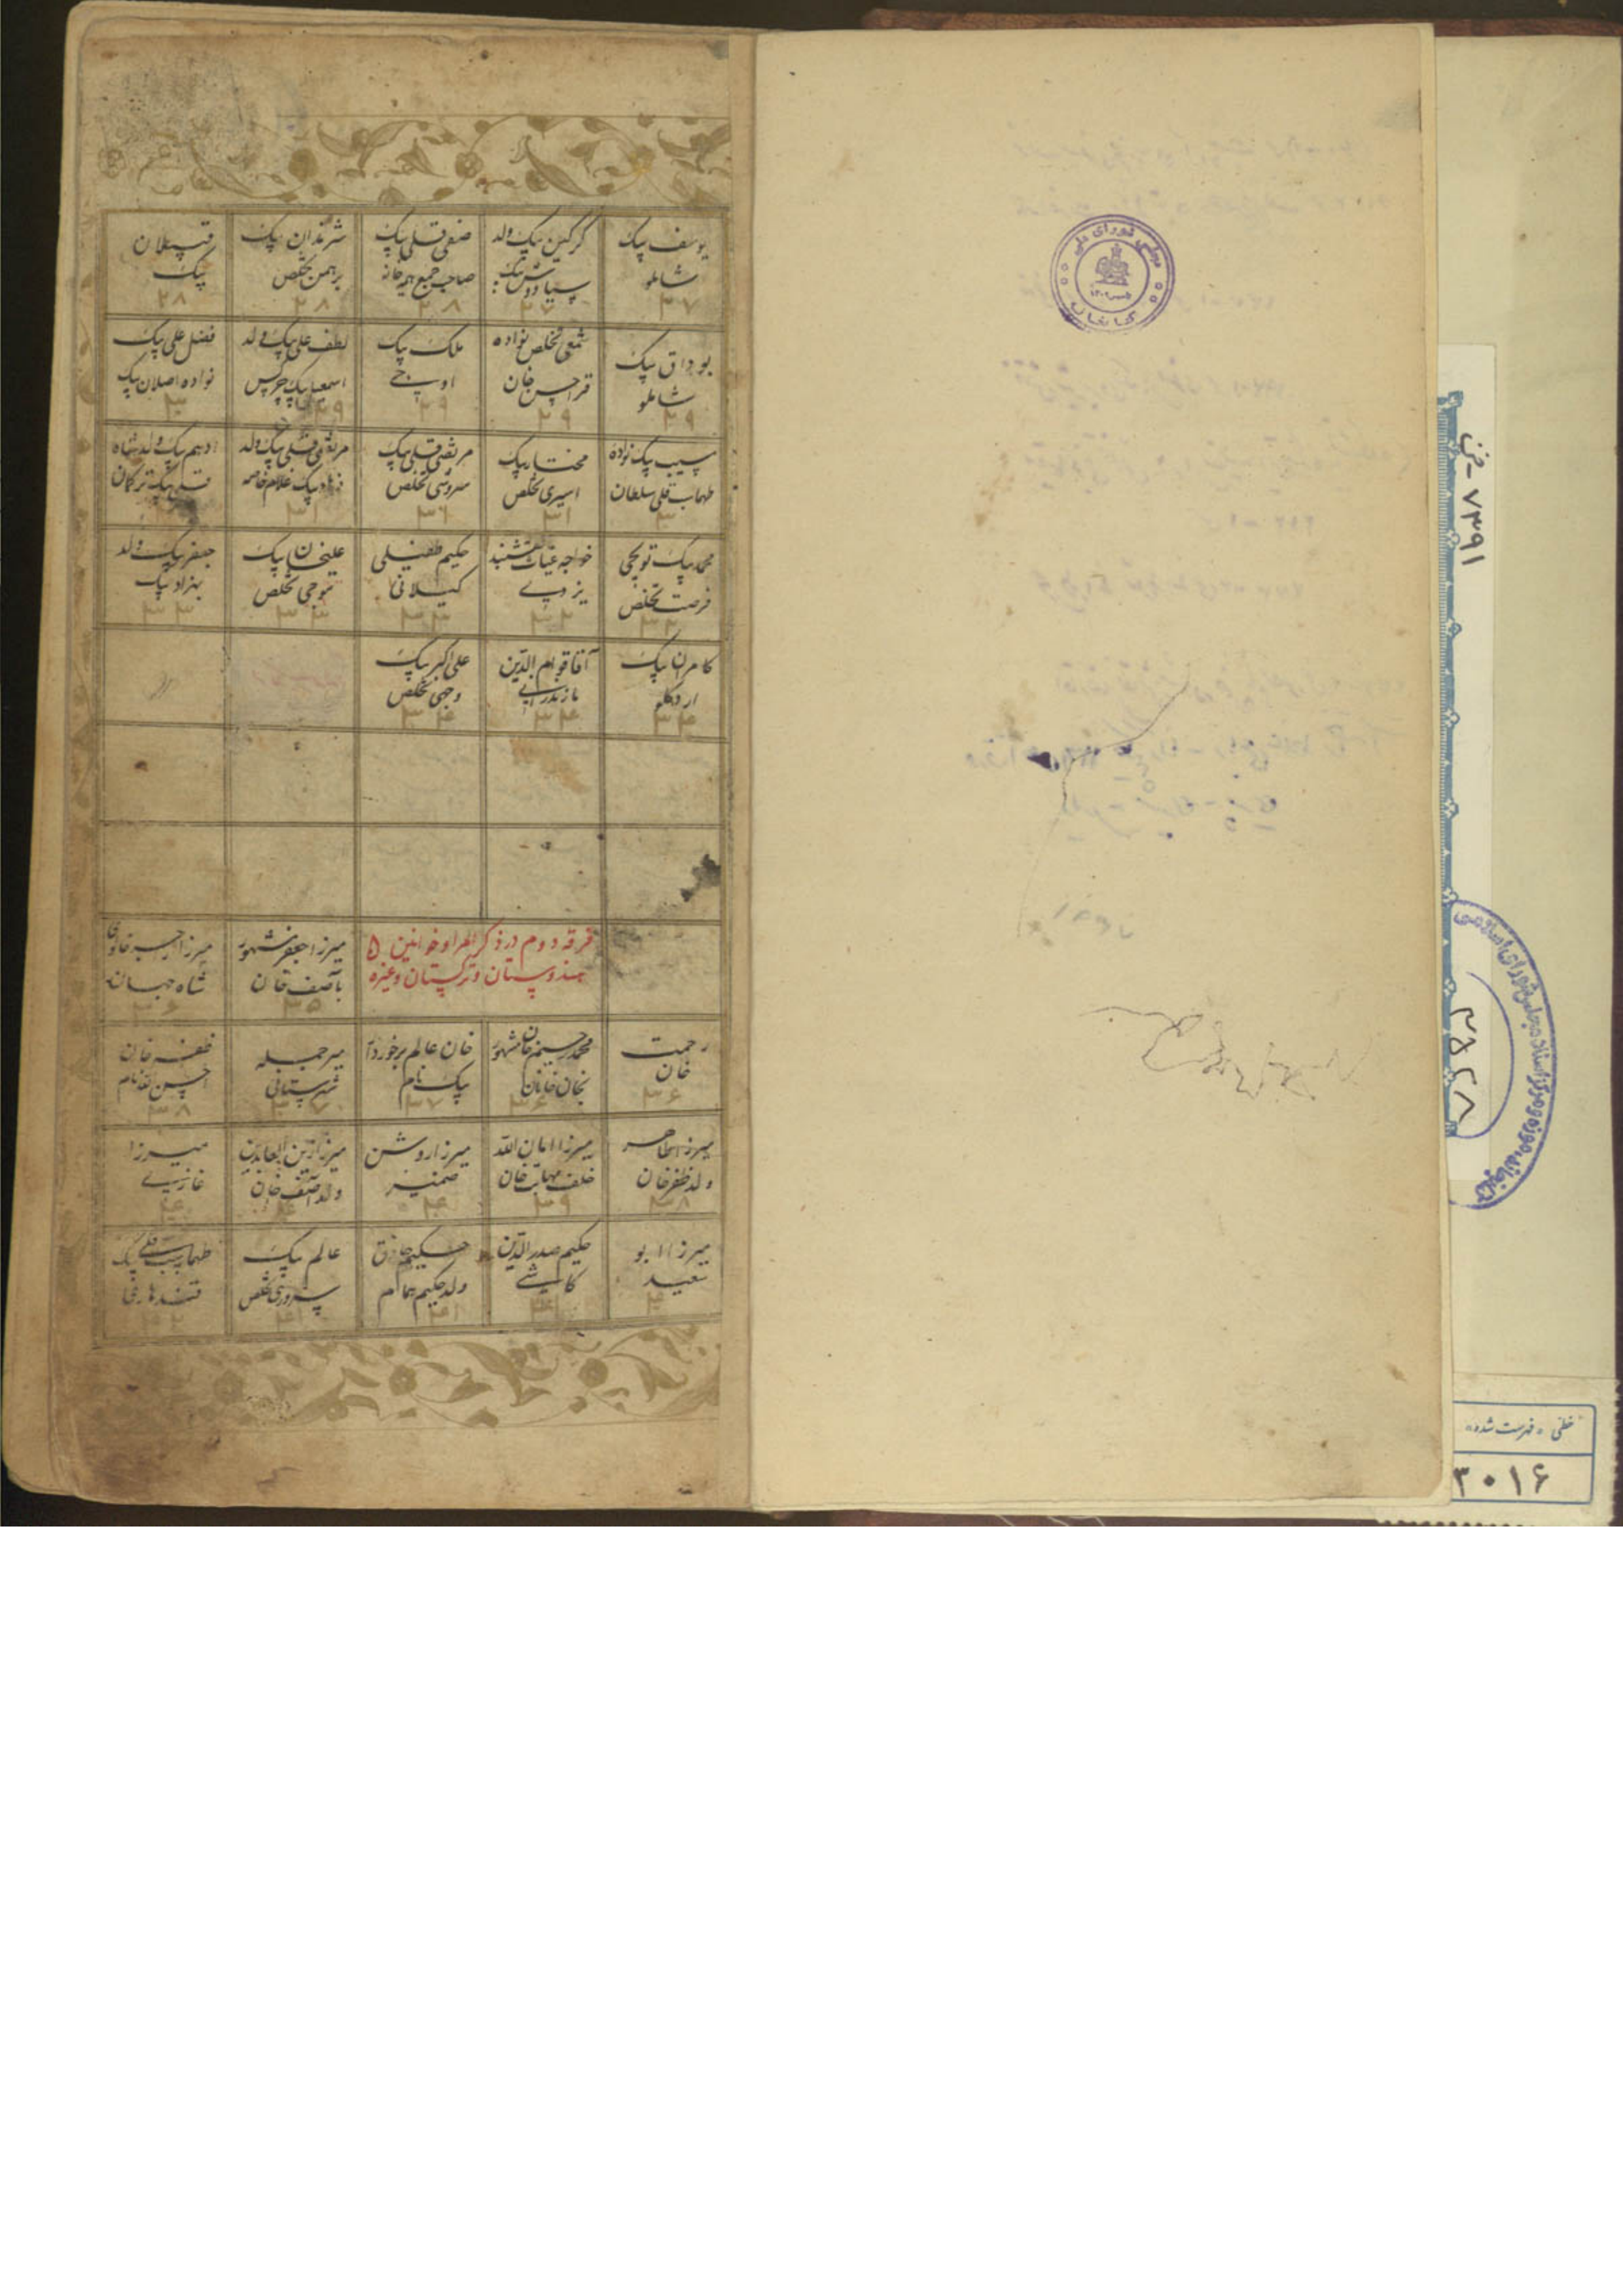 یوسف بیک
شاملو
۲۷
گرگین بیک ولد
سیاووش بیک
۲۷
صفی قلی بیک
صاحب جمع هیمه خانه
۲۸
برهمن تخلص
۲۸
قپلان
بیک
۲۸
بوداق بیک
شاملو
۲۹
شمعی تخلص نواده
قراحسن خان
۲۹
ملک بیک
اوبه‌جی
۲۹
لطف علی بیک ولد
اسمعیل بیک چرکس
۲۹
فضل علی بیک
نواده اصلان بیک
۳۰
سبب بیک نواده
طهماسب قلی سلطان
۳۰
مختار بیک
اسیری تخلص
۳۱
مرتضی قلی بیک
سروشی تخلص
۳۱
مرتضی قلی بیک ولد
فرهاد بیک غلام خاصه
۳۱
ادهم بیک ولد شاه
قلی بیک ترکمان
محمد بیک توپچی
فرصت تخلص
۳۲
خواجه غیاث نقشبند
یزدی
۳۲
حکیم طفیلی
گیلانی
۳۳
علیخان بیک
موجی تخلص
۳۳
جعفر بیک ولد
بهزاد بیک
۳۳
کامران بیک
۳۴
آقا قوام الدین
مازندرانی
۳۴
علی اکبر بیک
وجهی تخلص
۳۴
فرقه دوم در ذکر امرا و خوانین
هندوستان و ترکستان و غیره
میرزا جعفر مشهور
بآصف خان
۳۵
میرزا رجب
شاه جهان
۳۶
رحمت
خان
۳۶
محمد رحیم خان مشهور
بخان خانان
۳۶
خان عالم برخوردار
بیک نام
۳۷
میر جمله
شهرستانی
۳۷
ظفر خان
احسن الله نام
۳۸
میرزا طاهر
ولد ظفر خان
۳۸
میرزا امان الله
خلف مهابت خان
۳۹
میرزا روشن
ضمیر
۴۰
میرزا زین العابدین
ولد آصف خان
۴۰
میرزا
غازی
۴۰
میرزا ابو
سعید
۴۰
حکیم صدر الدین
کاشی
۴۱
حکیم حاذق
ولد حکیم همام
۴۱
عالم بیک
سروری تخلص
۴۱
طهماسب قلی بیک
قندهاری
۴۲
مجلس شورای ملی
کتابخانه
۷۳۹۱ - خن
کتابخانه، موزه و مرکز اسناد مجلس شورای اسلامی
خطی «فهرست شده»
۳۰۱۶